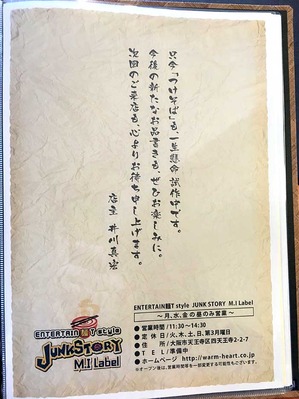 只今「つけそば」も、一生懸命 試作中です。
今後の新たなお品書きも、ぜひお楽しみに。
次回のご来店も、心よりお待ち申し上げます。
店主 井川真宏
ENTERTAIN麺T style
JUNK STORY
M.I Label
ENTERTAIN麺T style JUNK STORY M.I Label
〜月、水、金の昼のみ営業〜
●営業時間/11:30〜14:30
●定休日/火、木、土、日、第3月曜日
●住所/大阪市天王寺区四天王寺2-2-7
●TEL/準備中
●ホームページ http://warm-heart.co.jp
※オープン後は、営業時間等を一部変更する可能性もございます。